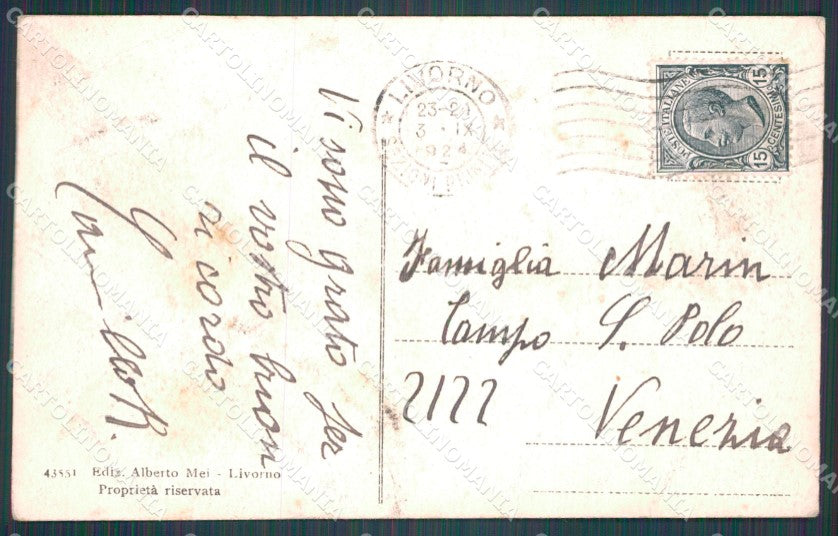 Vi sono grato per
il vostro buon
ricordo
LIVORNO
23-24
3 · IX
1924
POSTE ITALIANE
15
CENTESIMI
15
Famiglia Marin
Campo S. Polo
2122
Venezia
43551 Ediz. Alberto Mei - Livorno
Proprietà riservata
CARTOLINOMANIA